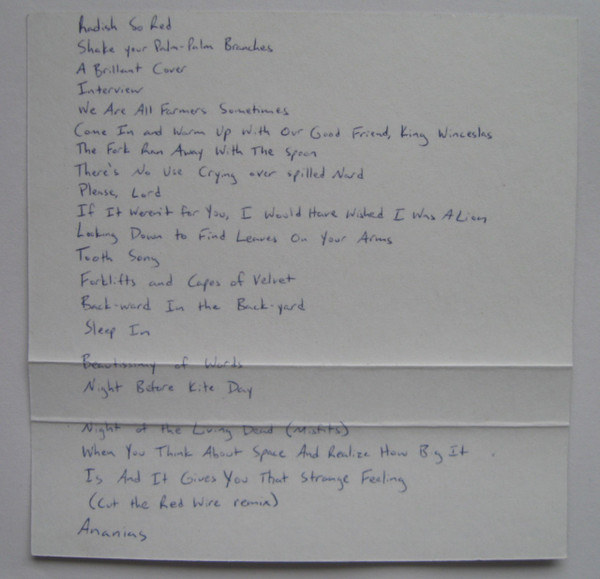 Radish So Red
Shake your Palm-Palm Branches
A Brillant Cover
Interview
We Are All Farmers Sometimes
Come In and Warm Up With Our Good Friend, King Winceslas
The Fork Ran Away With The Spoon
There's No Use Crying over spilled Nard
Please, Lord
If It Weren't For You, I Would Have Wished I Was A Lion
Looking Down to Find Leaves On Your Arms
Tooth Song
Forklifts and Capes of Velvet
Back-ward In the Back-yard
Sleep In
of Words
Night Before Kite Day
Night of the Living Dead (Misfits)
When You Think About Space And Realize How Big It
Is And It Gives You That Strange Feeling
(Cut the Red Wire remix)
Ananias